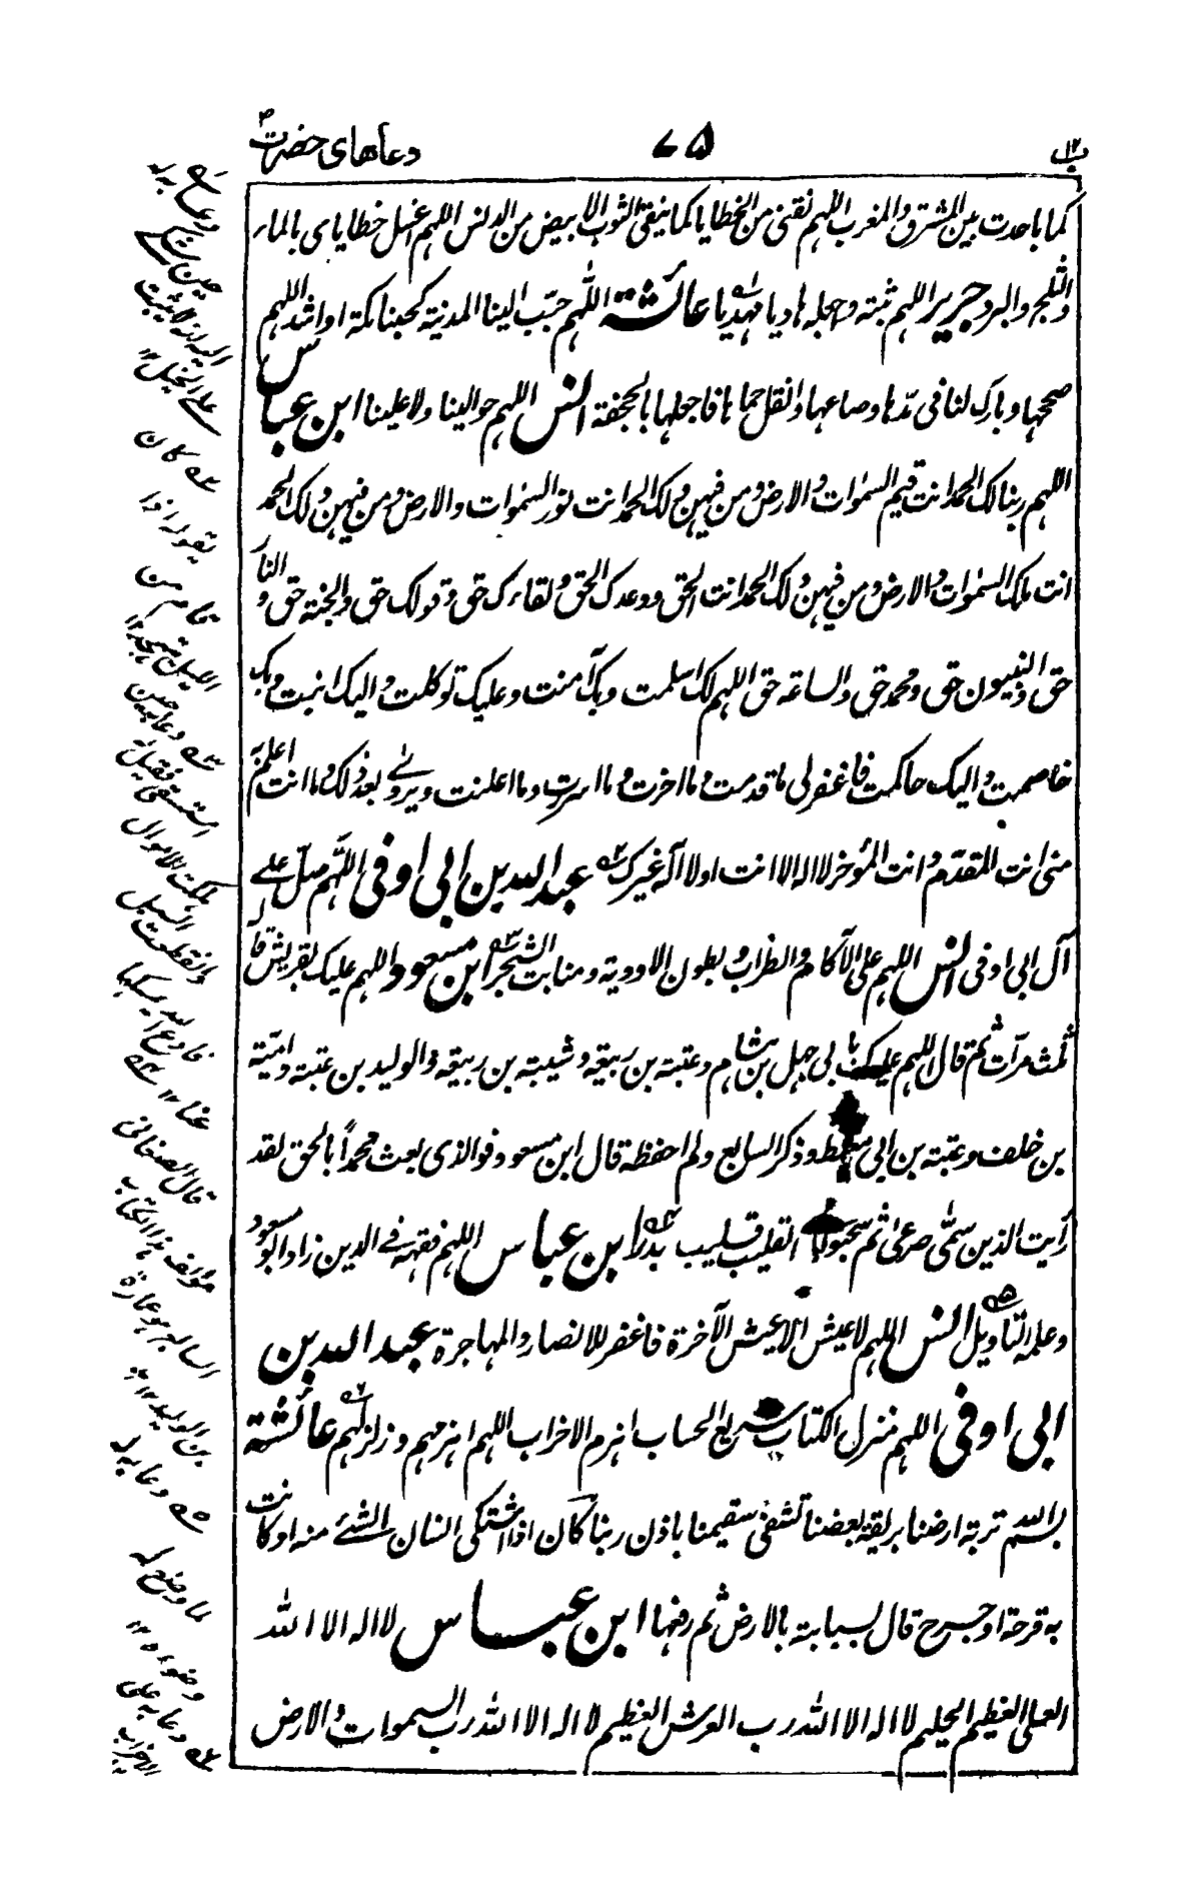 دعاهای حضرت
۷۵
باب ۱۲
كما باعدت بين المشرق والمغرب اللهم نقنی من الخطايا كما ينقی الثوب الابيض من الدنس اللهم اغسل خطايای بالماء
والثلج والبرد جرير اللهم ثبته واجعله هاديا مهديا عائشة اللهم حبّب الينا المدينة كحبنا مكة او اشد اللهم
صححها وبارك لنا فی مدّها وصاعها وانقل حماها فاجعلها بالجحفة انس اللهم حوالينا ولا علينا ابن عباس
اللهم ربنا لك الحمد انت قيم السمٰوات والارض ومن فيهن ولك الحمد انت نور السمٰوات والارض ومن فيهن ولك الحمد
انت ملك السمٰوات والارض ومن فيهن ولك الحمد انت الحق ووعدك الحق ولقاءك حق وقولك حق والجنة حق والنار
حق والنبيون حق ومحمد حق والساعة حق اللهم لك اسلمت وبك آمنت وعليك توكلت واليك انبت وبك
خاصمت واليك حاكمت فاغفر لی ما قدمت وما اخرت وما اسررت وما اعلنت ويروٰے بعد ذلك وما انت اعلم به
منی انت المقدّم وانت المؤخر لا اله الا انت او لا اله غيرك عبد الله بن ابی اوفی اللّهم صلّ علے
آل ابی اوفی انس اللهم علی الآكام والظراب وبطون الاودية ومنابت الشجر ابن مسعود اللهم عليك بقريش قا
ثلث مرات ثم قال اللهم عليك بابی جهل بن هشام وعتبة بن ربيعة وشيبة بن ربيعة والوليد بن عتبة واميّة
بن خلف وعقبة بن ابی معيط وذكر السابع ولم احفظه قال ابن مسعود فوالذی بعث محمداً بالحق لقد
رأيت الذين سمّٰی صرعٰی ثم سحبوا الی القليب قليب بدر ابن عباس اللهم فقهه فے الدين زاد ابو مسعود
وعلمه التاويل انس اللهم لا عيش الا عيش الآخرة فاغفر للانصار والمهاجرة عبد الله بن
ابی اوفی اللهم منزل الكتاب سريع الحساب اهزم الاحزاب اللهم اهزمهم وزلزلهم عائشة
بسم الله تربة ارضنا بريقة بعضنا تشفٰی سقيمنا باذن ربنا كان اذا اشتكی انسان الشئے منه او كانت
به قرحة او جرح قال بسبابته بالارض ثم رفعها ابن عباس لا اله الا الله
العلی العظيم الحليم لا اله الا الله رب العرش العظيم لا اله الا الله رب السموات والارض
دعا به له
حين
اليه انه لا يثبت
علے الخيل ۱۲
كان
يقوله اذا
قام من
الليل يتهجد ۱۲
دعا به حين
استسقی فقيل
هلكت الاموال
السبل
وانقطعت
فادع الله يمسكها
عنا ۱۲
قال الصغانی
مؤلف هذا الكتاب
السابع هو عمارة
بن الوليد ۱۲
دعا به له
لما وضع له
وضوءه ۱۲
دعا به علی
الاحزاب